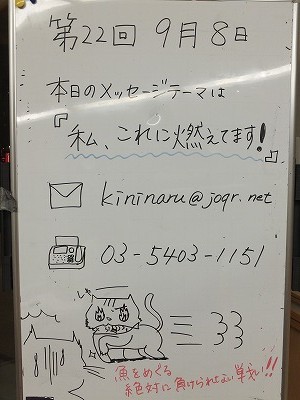 第22回 9月8日
本日のメッセージテーマは
『私、これに燃えてます!』
kininaru@joqr.net
03-5403-1151
魚をめぐる
絶対に負けられない戦い!!